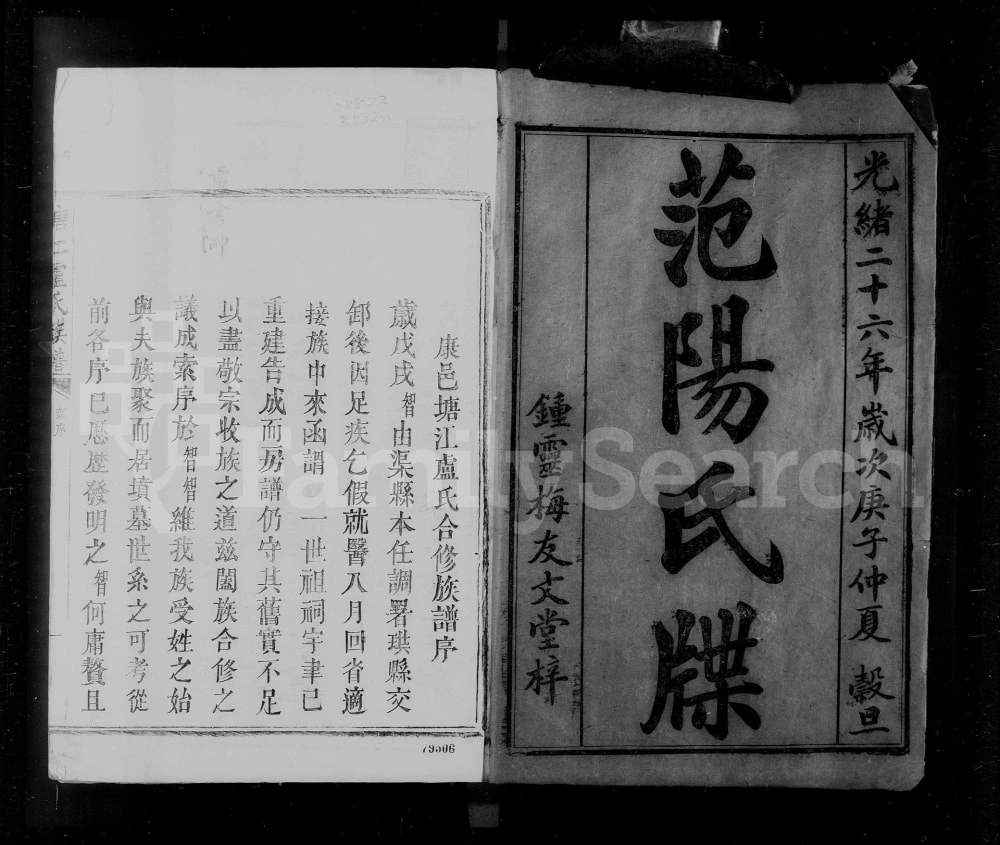 光緒二十六年歲次庚子仲夏 穀旦
范陽氏牒
鍾靈梅友文堂梓
康邑塘江盧氏合修族譜序
歲戊戌智由渠縣本任調署珙縣交
卸後因足疾乞假就醫八月回省適
接族中來函謂一世祖祠宇聿已
重建告成而房譜仍守其舊實不足
以盡敬宗收族之道茲闔族合修之
議成索序於智智維我族受姓之始
與夫族聚而居墳墓世系之可考從
前各序已歷歷發明之智何庸贅且
塘江盧氏族譜
79506
FamilySearch